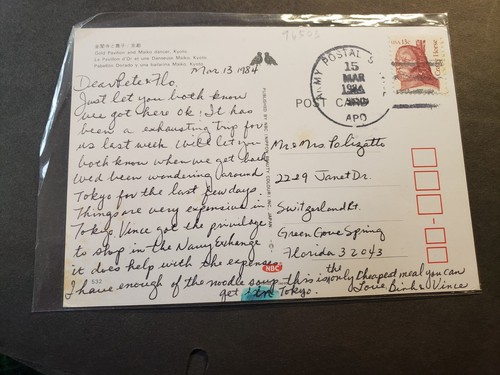 金閣寺と舞子／京都
Gold Pavilion and Maiko dancer, Kyoto
Le Pavillon d'Or et une Danseuse Maiko, Kyoto
Pabellon Dorado y una bailarina Maiko, Kyoto
Mar 13 1984
Dear Pete & Flo,
Just let you both know
we got here ok. It has
been a exhausting trip for
us last week. Will let you
both know when we get back
Wed been wondering around
Tokyo for the last few days.
Things are very expensive in
Tokyo, Vince got the privilage
to shop in the Navy Exchange
it does help with the expenses.
I have enough of the noodle soup, this is the only cheapest meal you can
get in Tokyo.
Love Binh & Vince
532
NBC
POST CARD
ARMY POSTAL S
15
MAR
1984
APO
USA 13c
Crazy Horse
Mr & Mrs Polizatto
2229 Janet Dr.
Switzerland Rt.
Green Cove Spring
Florida 32043